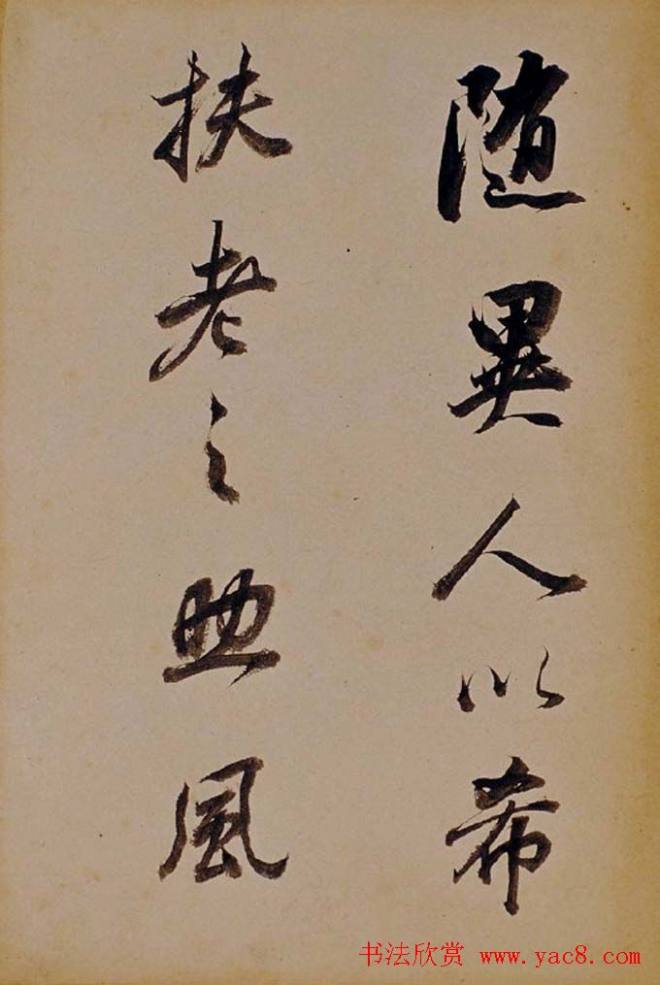 随異人以希
扶老之助風
书法欣赏 www.yac8.com